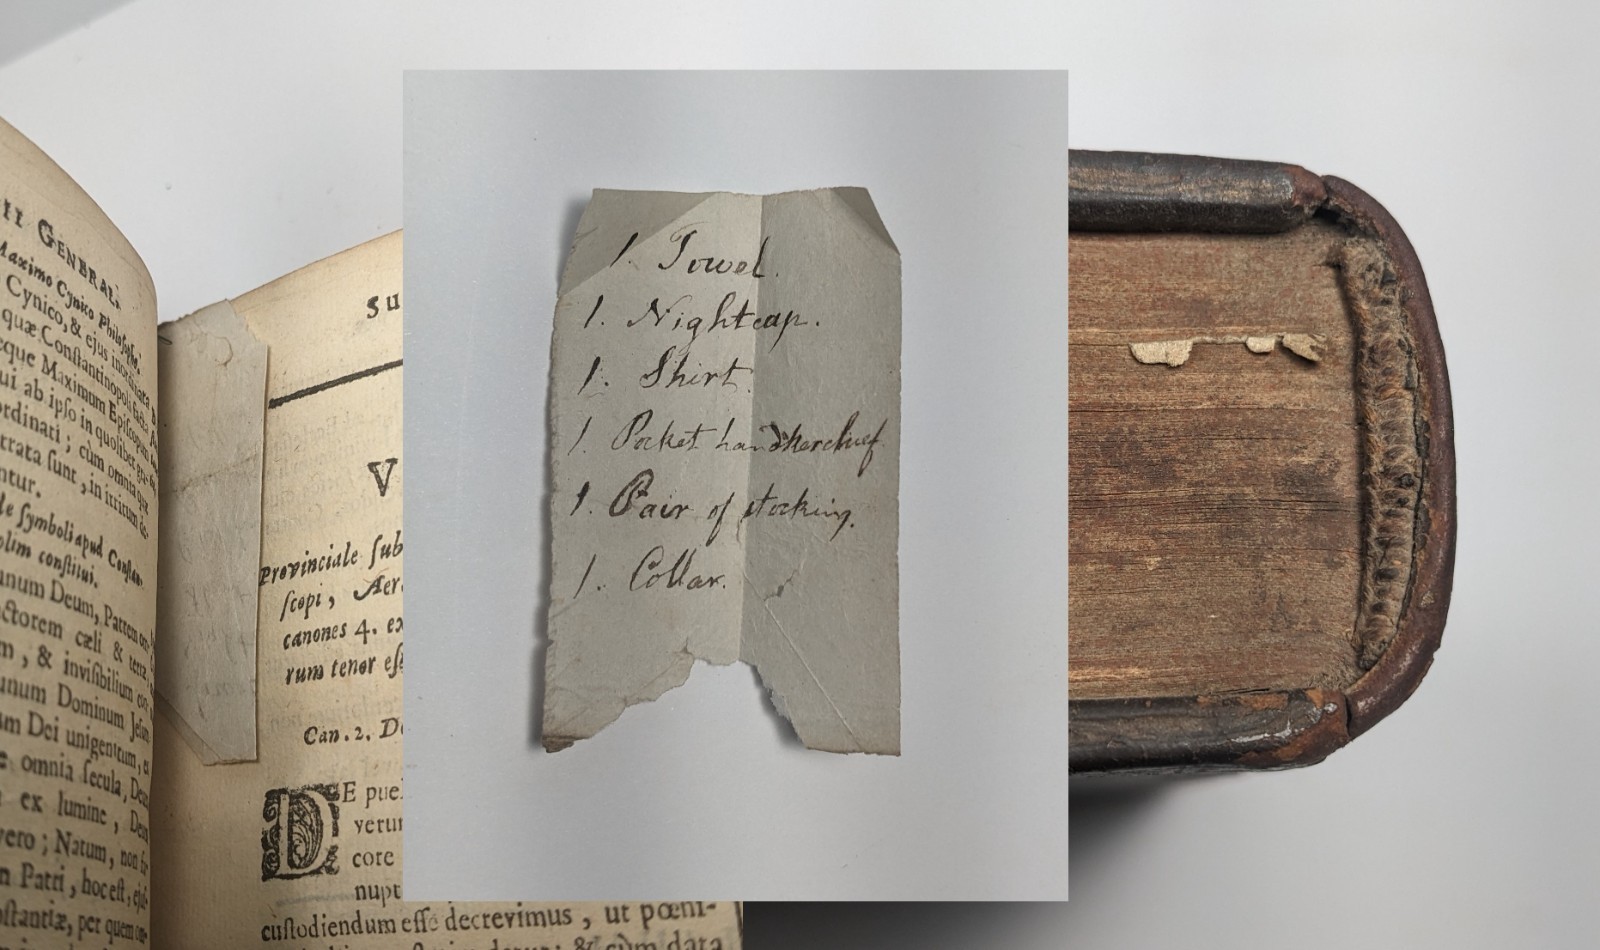 II GENERAL.
Maximo Cynico Philosopho,
Cynico, & ejus inordinata
quæ Constantinopoli facta
eque Maximum Episcopum
ui ab ipso in quolibet gra-
ordinati ; cùm omnia quæ
trata sunt, in irritum de-
ntur.
de symboli apud Constan-
olim constitui.
unum Deum, Patrem om-
ctorem cæli & terræ,
m, & invisibilium
unum Dominum Jesum
um Dei unigenitum, ex
e omnia secula, Deum
ex lumine, Deum
vero ; Natum, non fa-
n Patri, hoc est, ejus-
ostantiæ, per quem om-
SU
V
Provinciale sub
scopi, Aer
canones 4. ex
rum tenor ess
Can. 2. De
DE puel
verum
core
nupt
custodiendum esse decrevimus, ut pœni-
& cùm data
1. Towel.
1. Nightcap.
1. Shirt.
1. Pocket handkerchief.
1. Pair of stocking.
1. Collar.